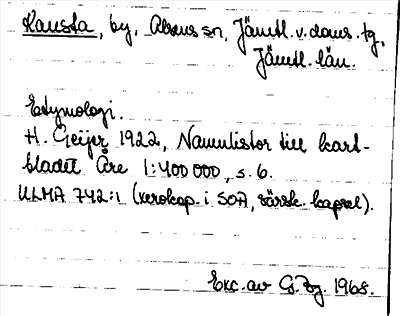 Kausta, by, Alsens sn, Jämtl. v. doms. tg,
Jämtl. län.
Etymologi.
H. Geijer 1922, Namnlistor till kart-
bladet Åre 1:400 000, s. 6.
ULMA 742:1 (xerokop. i SOA, särsk. kapsel).
Exc. av G. Bg. 1968.